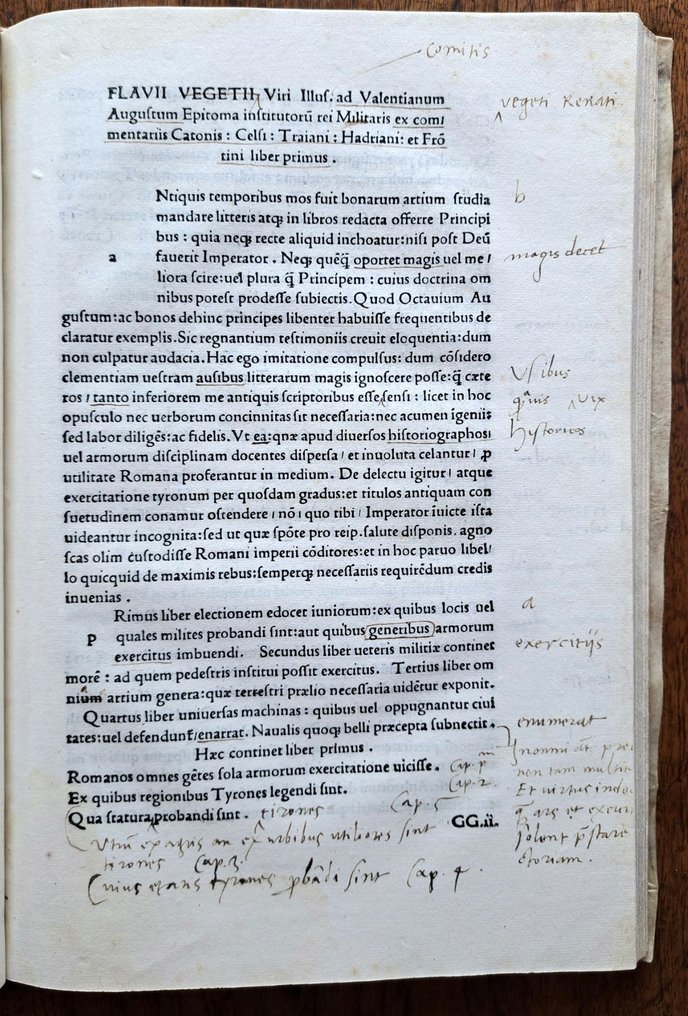 Comitis
FLAVII VEGETII Viri Illus. ad Valentianum
Vegeti Renati.
Augustum Epitoma institutorũ rei Militaris ex com/
mentariis Catonis : Celsi : Traiani : Hadriani : et Frõ
tini liber primus .
Ntiquis temporibus mos fuit bonarum artium studia
b
mandare litteris atq; in libros redacta offerre Principi
bus : quia neq; recte aliquid inchoatur:nisi post Deũ
a
fauerit Imperator . Neq; quẽq̃ oportet magis uel me/
magis decet
liora scire:uel plura q̃ Principem : cuius doctrina om
nibus potest prodesse subiectis. Quod Octauium Au
gustum:ac bonos dehinc principes libenter habuisse frequentibus de
claratur exemplis. Sic regnantium testimoniis creuit eloquentia:dum
non culpatur audacia. Hac ego imitatione compulsus: dum cõsidero
clementiam uestram ausibus litterarum magis ignoscere posse:q̃ cæte
Vsibus
ros / tanto inferiorem me antiquis scriptoribus esse sensi : licet in hoc
vix
opusculo nec uerborum concinnitas sit necessaria:nec acumen ĩgenii:
sed labor diligẽs:ac fidelis. Vt ea:quæ apud diuersos historiographos/
historicos
uel armorum disciplinam docentes dispersa / et inuoluta celantur / ꝓ
utilitate Romana proferantur in medium. De delectu igitur / atque
exercitatione tyronum per quosdam gradus:et titulos antiquam con
suetudinem conamur ostendere / nõ / quo tibi / Imperator ĩuicte ista
uideantur incognita:sed ut quæ spõte pro reip.salute disponis. agno
scas olim custodisse Romani imperii cõditores:et in hoc paruo libel/
lo quicquid de maximis rebus:semperq; necessariis requirẽdum credis
inuenias .
Rimus liber electionem edocet iuniorum:ex quibus locis uel
a
P
quales milites probandi sint:aut quibus generibus armorum
exercitus imbuendi. Secundus liber ueteris militiæ continet
exercitiis
morẽ : ad quem pedestris institui possit exercitus. Tertius liber om
nium artium genera:quæ terrestri prælio necessaria uidẽtur exponit.
Quartus liber uniuersas machinas : quibus uel oppugnantur ciui
tates:uel defendunt/enarrat. Naualis quoq; belli præcepta subnectit.
enumerat
Hæc continet liber primus .
Romanos omnes gẽtes sola armorum exercitatione uicisse.
Cap. p
non tam
Ex quibus regionibus Tyrones legendi sint.
Cap. 2.
Et virtus
Qua statura probandi sint .
tirones
Cap. 5
GG.ii.
ars et
Vtrũ ex agris an ex vrbibus vtiliores sint
solent p̃stare
tirones Cap. 3.
ctoriam.
Cuius etatis tyrones ꝓbãdi sint Cap. 4.